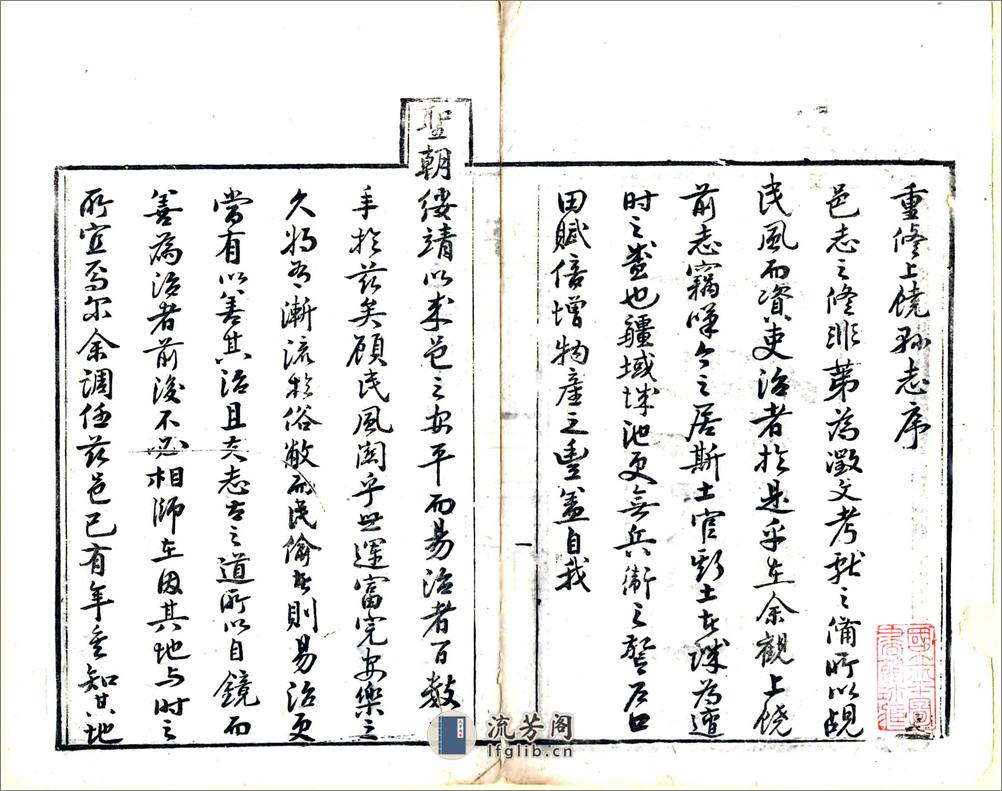 重修上饒縣志序
邑志之修非第為徵文考獻之備所以覘
民風而資吏治者於是乎在余觀上饒
前志竊嘆今之居斯土官斯土者殊為遭
時之盛也疆域城池更無兵衛之警戶口
田賦倍增物產之豐蓋自我
一
聖朝綏靖以來邑之安平而易治者百數
年於茲矣顧民風關乎世運富完安樂之
久將有漸流於俗敝而民偷者則易治更
當有以善其治且夫志古之道所以自鏡而
善為治者前後不必相師在因其地与时之
所宜焉尔余調任茲邑已有年矣知其地
流芳阁
lfglib.cn